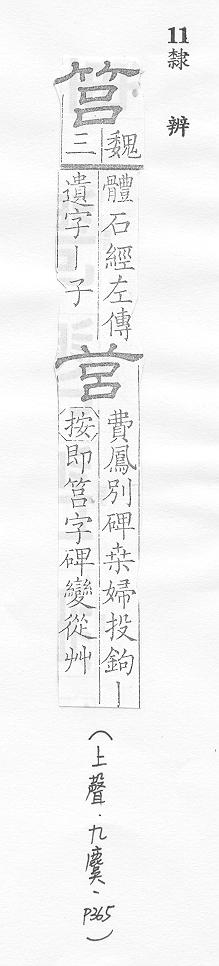 11 隸 辨
筥
魏
三
體石經左傳
遺字丨子
莒
費鳳別碑桒婦投鉤丨
按即筥字碑變從艸
(上聲．九麌．P365)